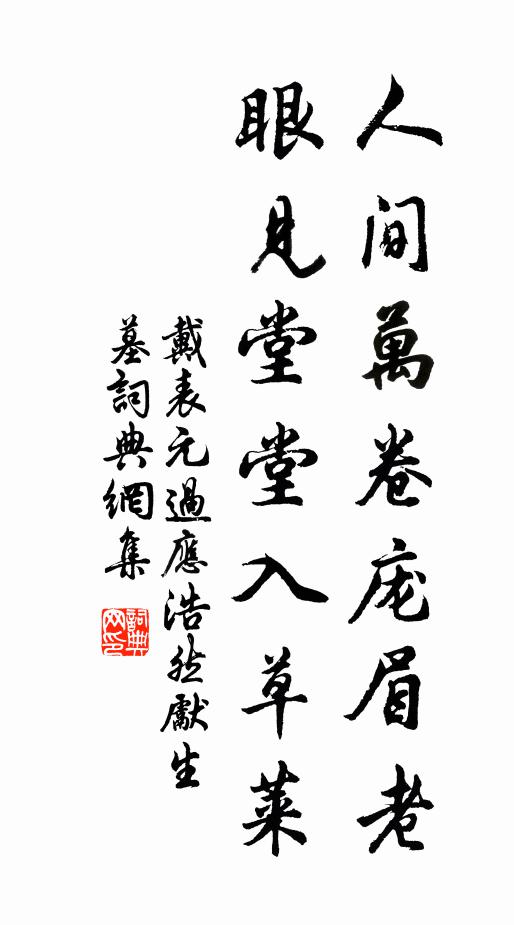 人間萬卷庞眉老
眼見堂堂入草萊
戴表元過應浩然獻生
墓詞典網集
詞典網印